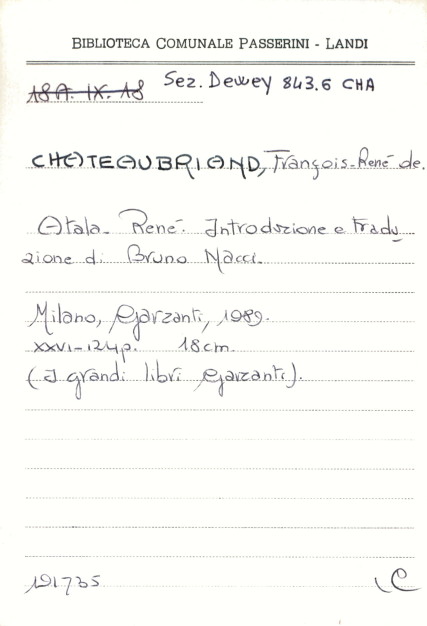 BIBLIOTECA COMUNALE PASSERINI - LANDI
18A. IX. 18 Sez. Dewey 843.6 CHA
CHATEAUBRIAND, François-René de.
Atala. René. Introduzione e tradu
zione di Bruno Nacci.
Milano, Garzanti, 1989.
XXVI-124p. 18cm.
(I grandi libri Garzanti).
191735